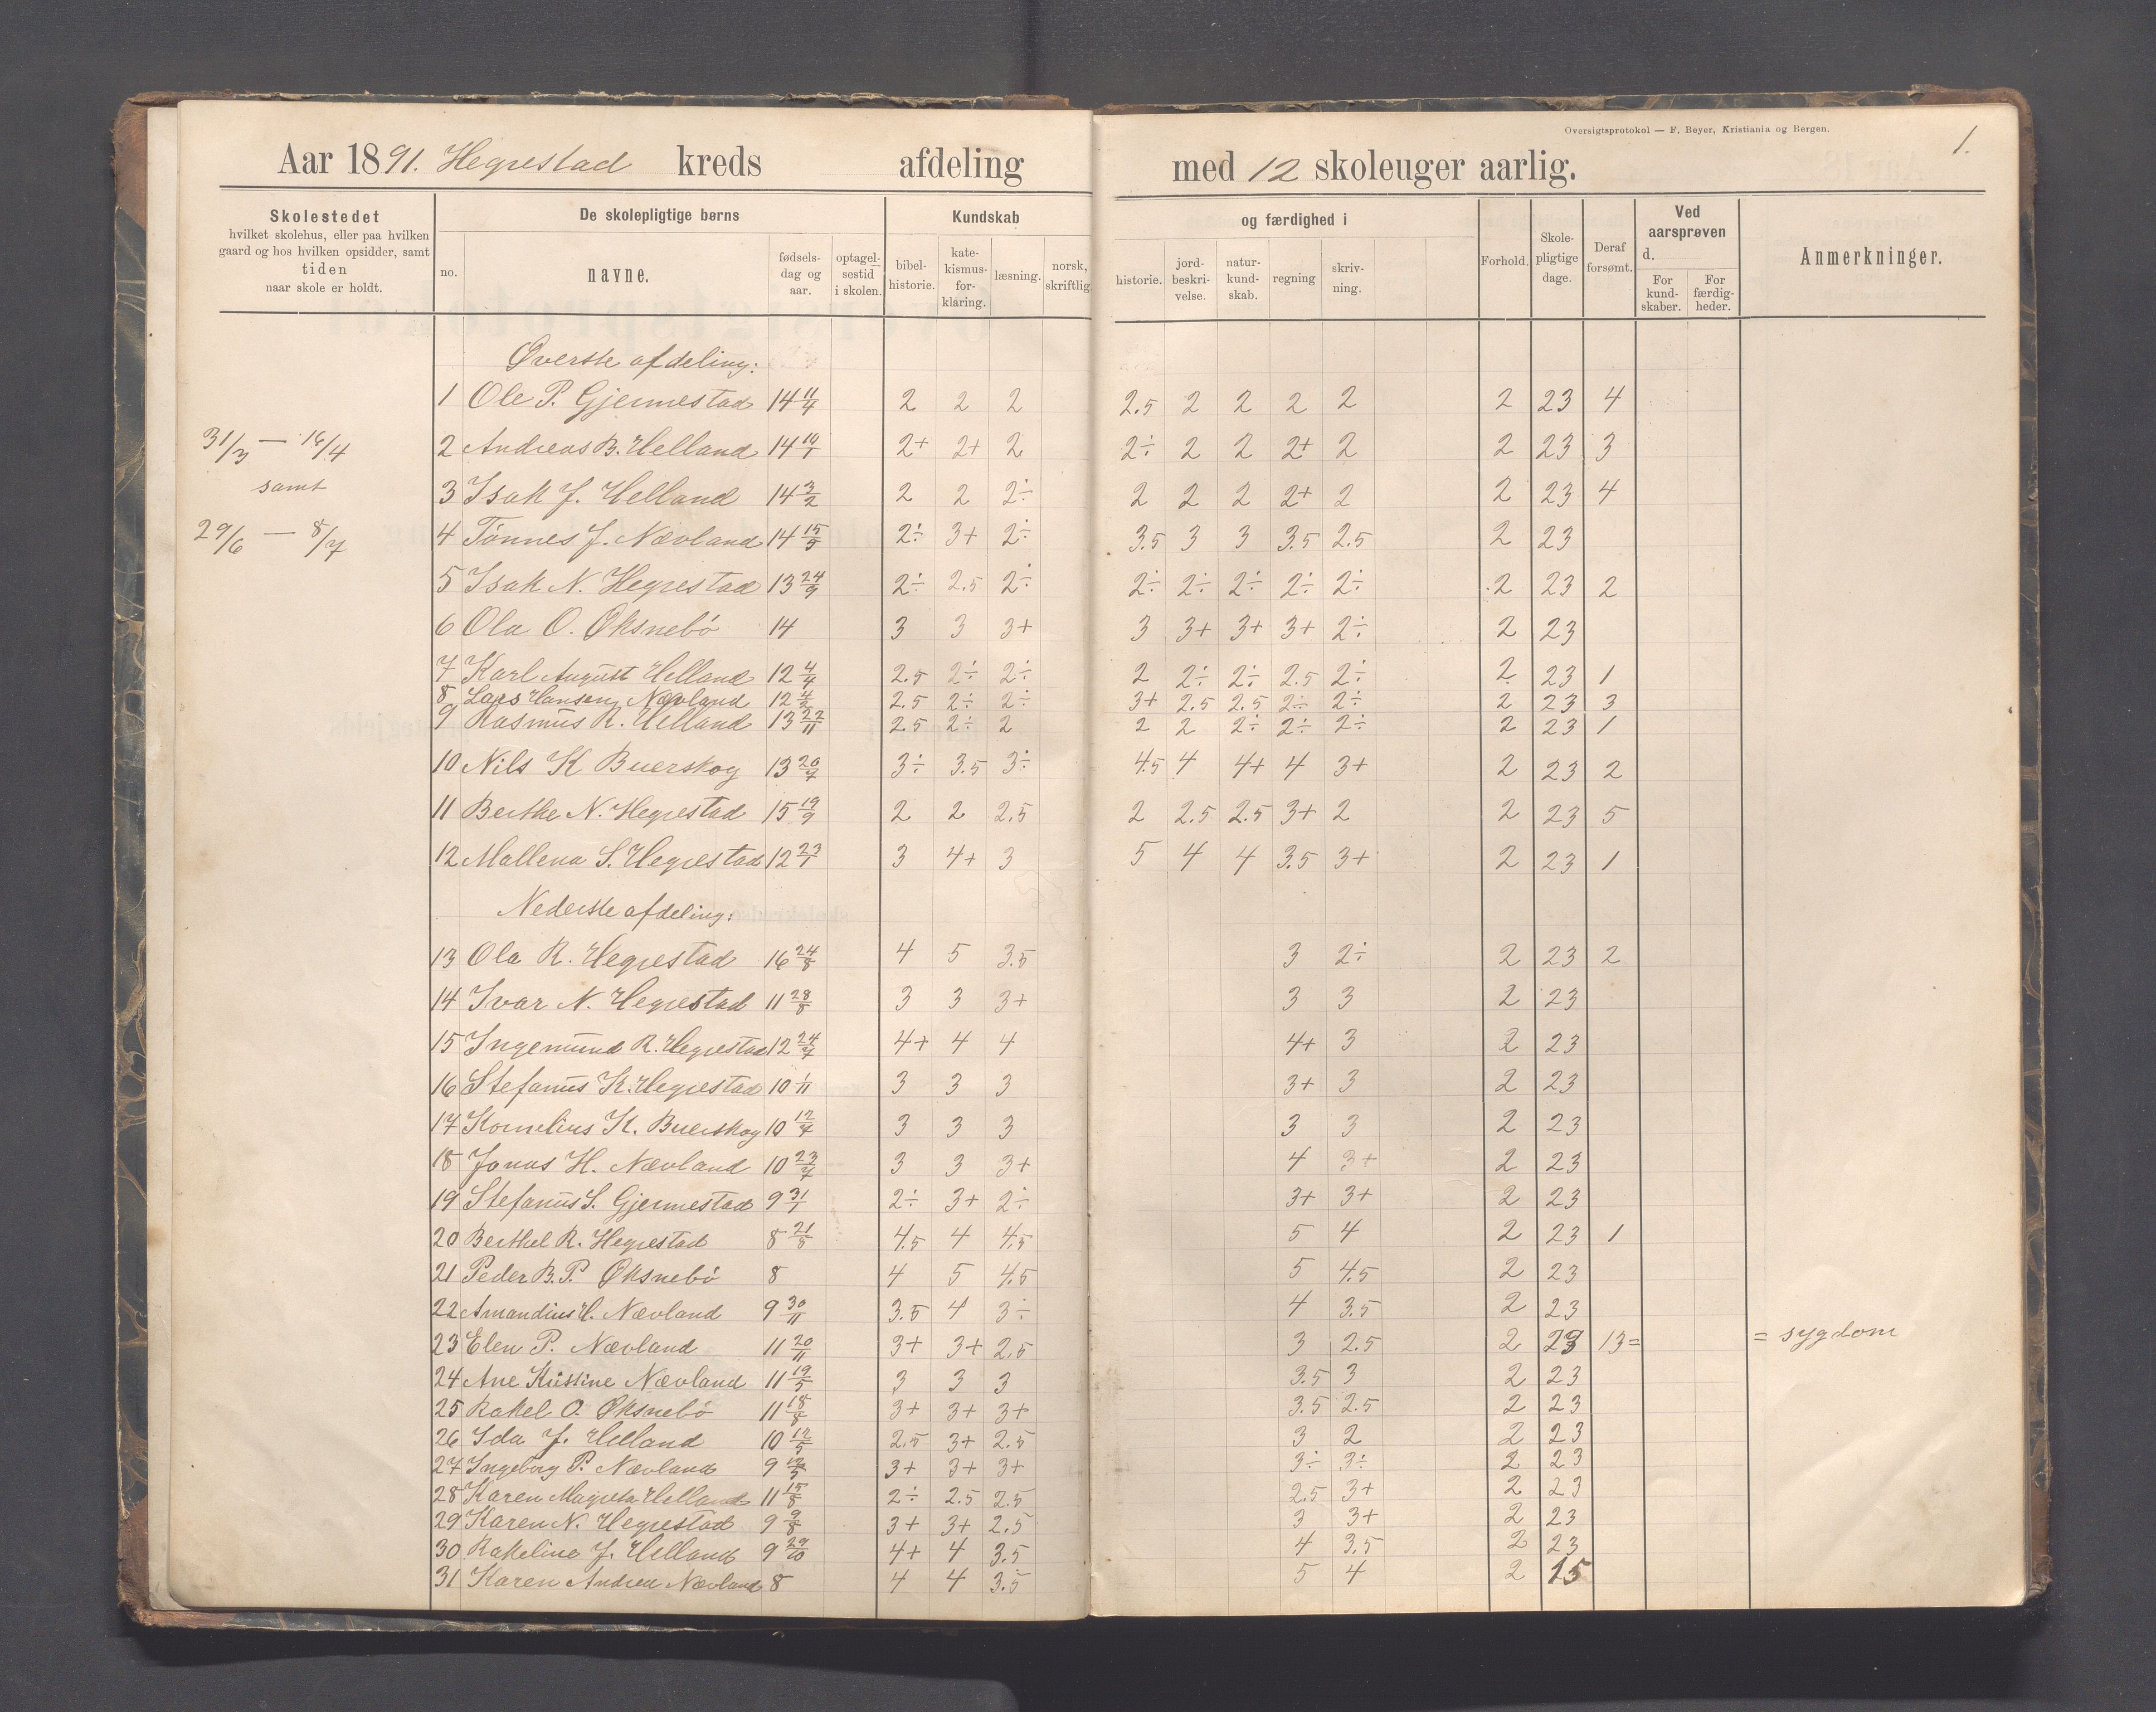 Oversigtsprotokol — F. Beyer, Kristiania og Bergen.
1.
Aar 1891. Hegrestad kreds afdeling med 12 skoleuger aarlig.
Skolestedet hvilket skolehus, eller paa hvilken gaard og hos hvilken opsidder, samt tiden naar skole er holdt.
De skolepligtige børns
no. navne. fødselsdag og aar. optagelsestid i skolen.
Kundskab og færdighed i
bibelhistorie. katekismusforklaring. læsning. norsk, skriftlig historie. jordbeskrivelse. naturkundskab. regning skrivning.
Forhold. Skolepligtige dage. Deraf forsømt.
Ved aarsprøven d.
For kundskaber. For færdigheder.
Anmerkninger.
Øverste afdeling:
1 Ole P. Gjermestad 14 11/4 2 2 2 2.5 2 2 2 2 2 23 4
31/3 — 16/4
2 Andreas B. Helland 14 19/1 2+ 2+ 2 2÷ 2 2 2+ 2 2 23 3
samt
3 Isak J. Helland 14 3/2 2 2 2÷ 2 2 2 2+ 2 2 23 4
29/6 — 8/7
4 Tönnes J. Nævland 14 15/5 2÷ 3+ 2÷ 3.5 3 3 3.5 2.5 2 23
5 Isak N. Hegrestad 13 24/9 2÷ 2.5 2÷ 2÷ 2÷ 2÷ 2÷ 2÷ 2 23 2
6 Ola O. Øksnebö 14 3 3 3+ 3 3+ 3+ 3+ 2÷ 2 23
7 Karl August Helland 12 4/4 2.5 2÷ 2÷ 2 2÷ 2÷ 2.5 2÷ 2 23 1
8 Lars Hansen Nævland 12 4/2 2.5 2÷ 2÷ 3+ 2.5 2.5 2÷ 2÷ 2 23 3
9 Rasmus R. Helland 13 22/11 2.5 2÷ 2 2 2 2÷ 2÷ 2÷ 2 23 1
10 Nils K Buerskog 13 20/7 3÷ 3.5 3÷ 4.5 4 4+ 4 3+ 2 23 2
11 Berthe N. Hegrestad 15 19/9 2 2 2.5 2 2.5 2.5 3+ 2 2 23 5
12 Mallena S. Hegrestad 12 23/1 3 4+ 3 5 4 4 3.5 3+ 2 23 1
Nederste afdeling:
13 Ola R. Hegrestad 16 24/8 4 5 3.5 3 2÷ 2 23 2
14 Ivar N. Hegrestad 11 28/8 3 3 3+ 3 3 2 23
15 Ingemund R. Hegrestad 12 24/7 4+ 4 4 4+ 3 2 23
16 Stefanus K. Hegrestad 10 1/11 3 3 3 3+ 3 2 23
17 Kornelius K. Buerskog 10 12/4 3 3 3 3 3 2 23
18 Jonas H. Nævland 10 23/7 3 3 3+ 4 3+ 2 23
19 Stefanus S. Gjermestad 9 31/1 2÷ 3+ 2÷ 3+ 3+ 2 23
20 Berthel R. Hegrestad 8 21/8 4.5 4 4.5 5 4 2 23 1
21 Peder B. P. Øksnebö 8 4 5 4.5 5 4.5 2 23
22 Amandius H. Nævland 9 30/11 3.5 4 3÷ 4 3.5 2 23
23 Elen P. Nævland 11 20/11 3+ 3+ 2.5 3 2.5 2 23 13= = sygdom
24 Ane Kristine Nævland 11 19/5 3 3 3 3.5 3 2 23
25 Rakel O. Øksnebö 11 18/8 3+ 3+ 3+ 3.5 2.5 2 23
26 Ida J. Helland 10 12/5 2.5 3+ 2.5 3 2 2 23
27 Ingeborg P. Nævland 9 3+ 3+ 3+ 3÷ 3÷ 2 23
28 Karen Magreta Helland 11 15/8 2÷ 2.5 2.5 2.5 3+ 2 23
29 Karen N. Hegrestad 9 9/8 3+ 3+ 2.5 3 3+ 2 23
30 Rakeline J. Helland 9 29/10 4+ 4 3.5 4 3.5 2 23
31 Karen Andrea Nævland 8 4 4 3.5 5 4 2 15